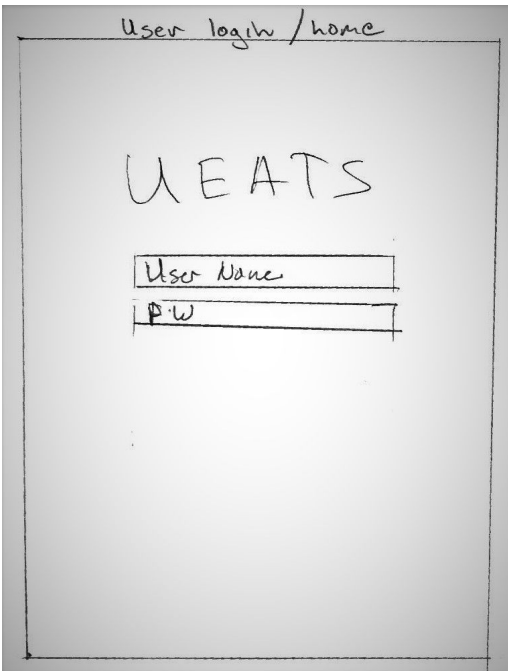 User login / home
UEATS
User Name
P.W